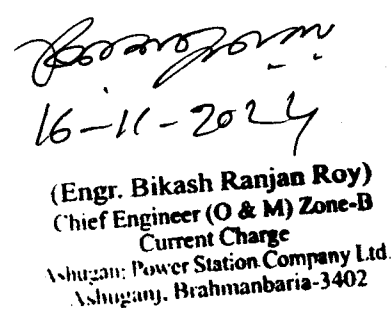 16-11-2024
(Engr. Bikash Ranjan Roy)
Chief Engineer (O & M) Zone-B
Current Charge
Ashuganj Power Station Company Ltd.
Ashuganj, Brahmanbaria-3402